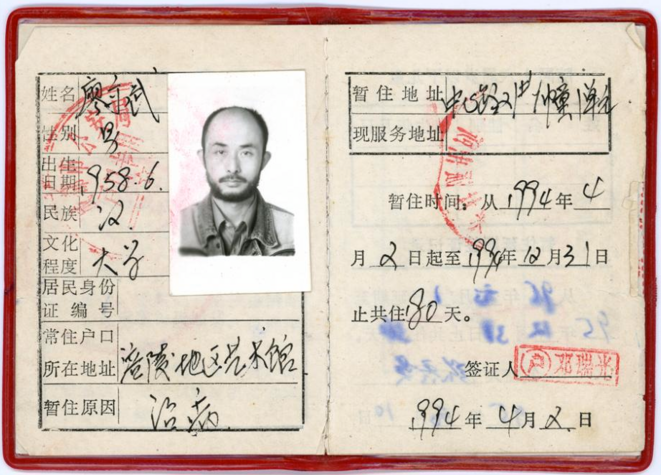 姓名 廖亦武
性别 男
出生日期 1958.6.
民族 汉
文化程度 大学
居民身份证编号
常住户口所在地址 涪陵地区艺术馆
暂住原因 治病
暂住地址
现服务地址
暂住时间。从 1994 年 4
月 2 日起至 1994 年 12 月 31 日
止共住 80 天。
签证人 邓瑞光
1994 年 4 月 2 日